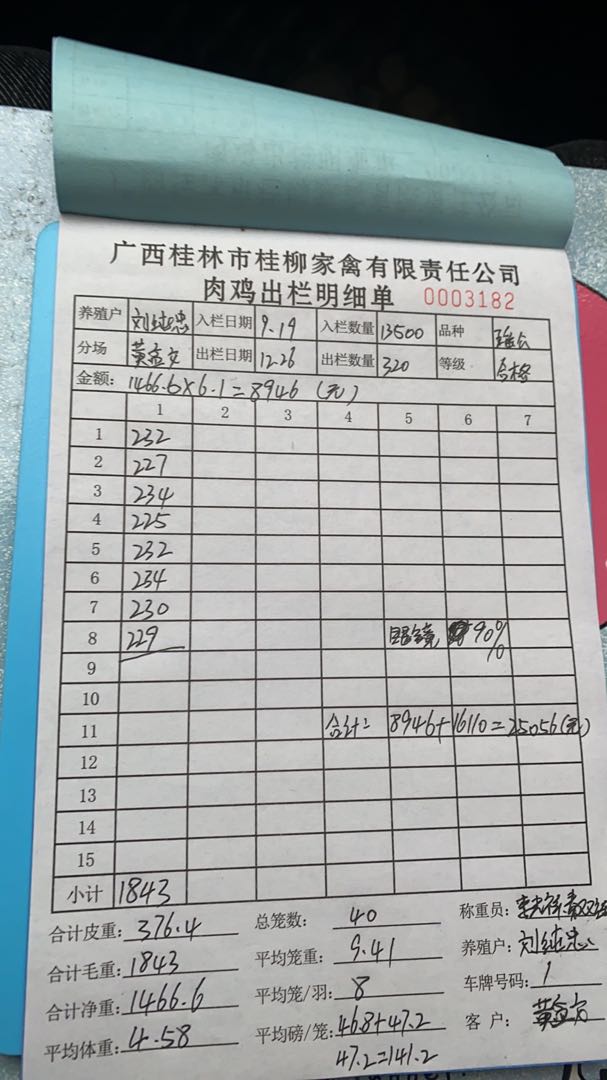 广西桂林市桂柳家禽有限责任公司
肉鸡出栏明细单 0003182
养殖户 刘继忠 入栏日期 9.19 入栏数量 13500 品种
分场 黄益文 出栏日期 12.26 出栏数量 320 等级 合格
金额: 1466.6×6.1=8946 (元)
1 2 3 4 5 6 7
1 232
2 227
3 234
4 225
5 232
6 234
7 230
8 229 90%
9
10
11 合计: 8946+16110=25056(元)
12
13
14
15
小计 1843
合计皮重: 376.4 总笼数: 40 称重员:
合计毛重: 1843 平均笼重: 9.41 养殖户: 刘继忠
合计净重: 1466.6 平均笼/羽: 8 车牌号码: 1
平均体重: 4.58 平均磅/笼: 46.8+47.2 客户: 黄益文
47.2=141.2